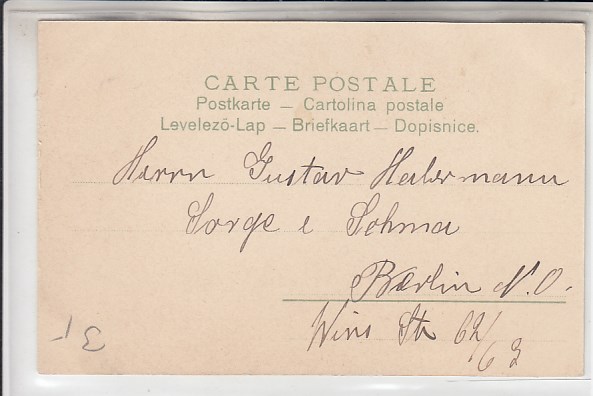 CARTE POSTALE
Postkarte — Cartolina postale
Levelező-Lap — Briefkaart — Dopisnice.
Herrn Gustav Habermann
Sorge e Sohma
Berlin N.O.
Wins Str 62/63
3